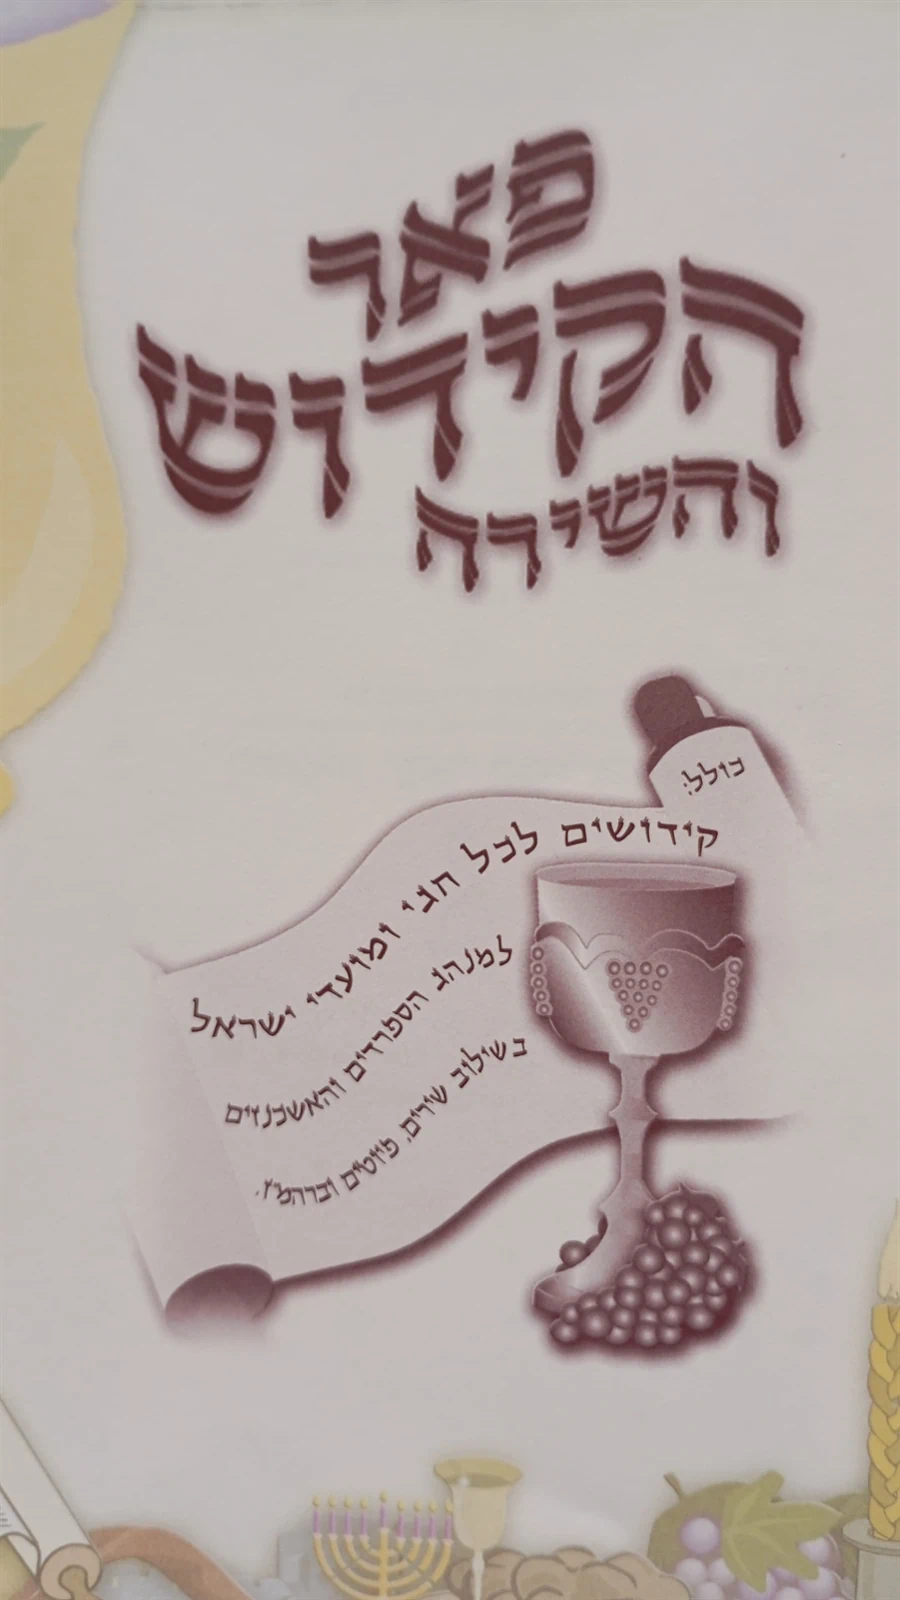 פאר
הקידוש
והשירה
כולל:
קידושים לכל חגי ומועדי ישראל
למנהג הספרדים והאשכנזים
בשילוב שירים, פיוטים וברהמ"ז.